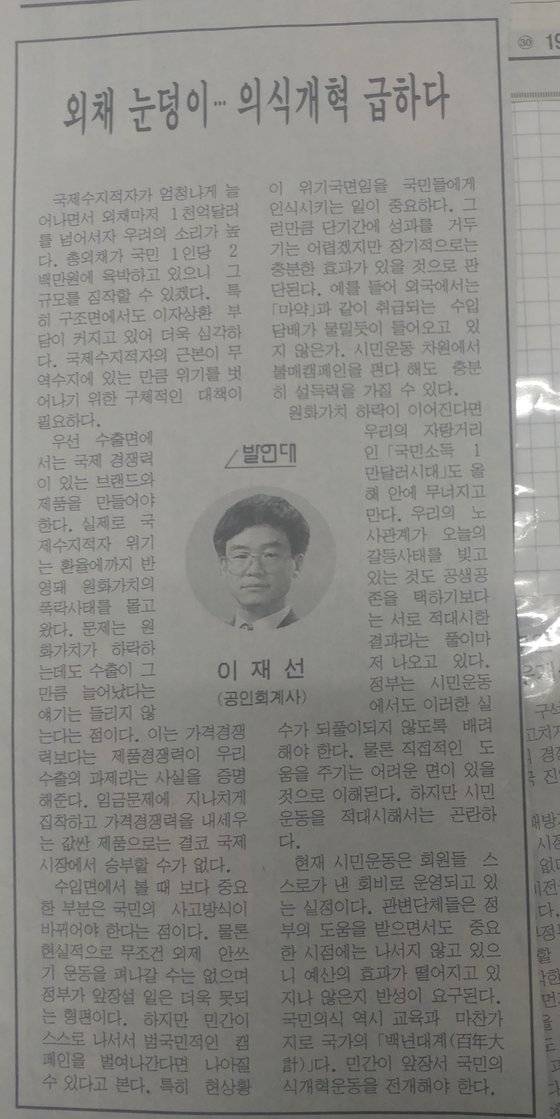 외채 눈덩이… 의식개혁 급하다
국제수지적자가 엄청나게 늘
어나면서 외채마저 1천억달러
를 넘어서자 우려의 소리가 높
다. 총외채가 국민 1인당 2
백만원에 육박하고 있으니 그
규모를 짐작할 수 있겠다. 특
히 구조면에서도 이자상환 부
담이 커지고 있어 더욱 심각하
다. 국제수지적자의 근본이 무
역수지에 있는 만큼 위기를 벗
어나기 위한 구체적인 대책이
필요하다.
우선 수출면에
서는 국제 경쟁력
이 있는 브랜드와
제품을 만들어야
한다. 실제로 국
제수지적자 위기
는 환율에까지 반
영돼 원화가치의
폭락사태를 몰고
왔다. 문제는 원
화가치가 하락하
는데도 수출이 그
만큼 늘어났다는
얘기는 들리지 않
는다는 점이다. 이는 가격경쟁
력보다는 제품경쟁력이 우리
수출의 과제라는 사실을 증명
해준다. 임금문제에 지나치게
집착하고 가격경쟁력을 내세우
는 값싼 제품으로는 결코 국제
시장에서 승부할 수가 없다.
수입면에서 볼 때 보다 중요
한 부분은 국민의 사고방식이
바뀌어야 한다는 점이다. 물론
현실적으로 무조건 외제 안쓰
기 운동을 펴나갈 수는 없으며
정부가 앞장설 일은 더욱 못되
는 형편이다. 하지만 민간이
스스로 나서서 범국민적인 캠
페인을 벌여나간다면 나아질
수 있다고 본다. 특히 현상황
이 위기국면임을 국민들에게
인식시키는 일이 중요하다. 그
런만큼 단기간에 성과를 거두
기는 어렵겠지만 장기적으로는
충분한 효과가 있을 것으로 판
단된다. 예를 들어 외국에서는
「마약」과 같이 취급되는 수입
담배가 물밀듯이 들어오고 있
지 않은가. 시민운동 차원에서
불매캠페인을 편다 해도 충분
히 설득력을 가질 수 있다.
원화가치 하락이 이어진다면
우리의 자랑거리
인 「국민소득 1
만달러시대」도 올
해 안에 무너지고
만다. 우리의 노
사관계가 오늘의
갈등사태를 빚고
있는 것도 공생공
존을 택하기보다
는 서로 적대시한
결과라는 풀이마
저 나오고 있다.
정부는 시민운동
에서도 이러한 실
수가 되풀이되지 않도록 배려
해야 한다. 물론 직접적인 도
움을 주기는 어려운 면이 있을
것으로 이해된다. 하지만 시민
운동을 적대시해서는 곤란하
다.
현재 시민운동은 회원들 스
스로가 낸 회비로 운영되고 있
는 실정이다. 관변단체들은 정
부의 도움을 받으면서도 중요
한 시점에는 나서지 않고 있으
니 예산의 효과가 떨어지고 있
지나 않은지 반성이 요구된다.
국민의식 역시 교육과 마찬가
지로 국가의 「백년대계(百年大
計)」다. 민간이 앞장서 국민의
식개혁운동을 전개해야 한다.
발언대
이 재 선
(공인회계사)
㉚ 19